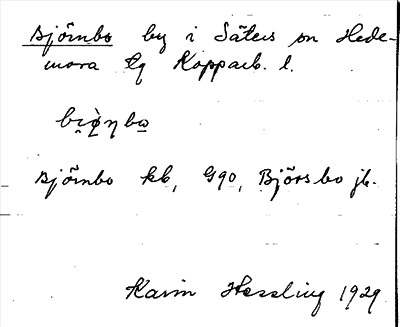 Björnbo by i Säters sn Hede-
mora tg Kopparb. l.
Björnbo kb, G90, Björsbo jb.
Karin Hessling 1929